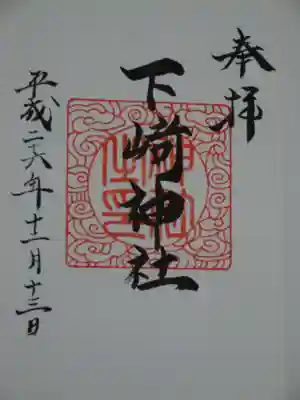 奉拝
下﨑神社
平成二六年十一月十三日